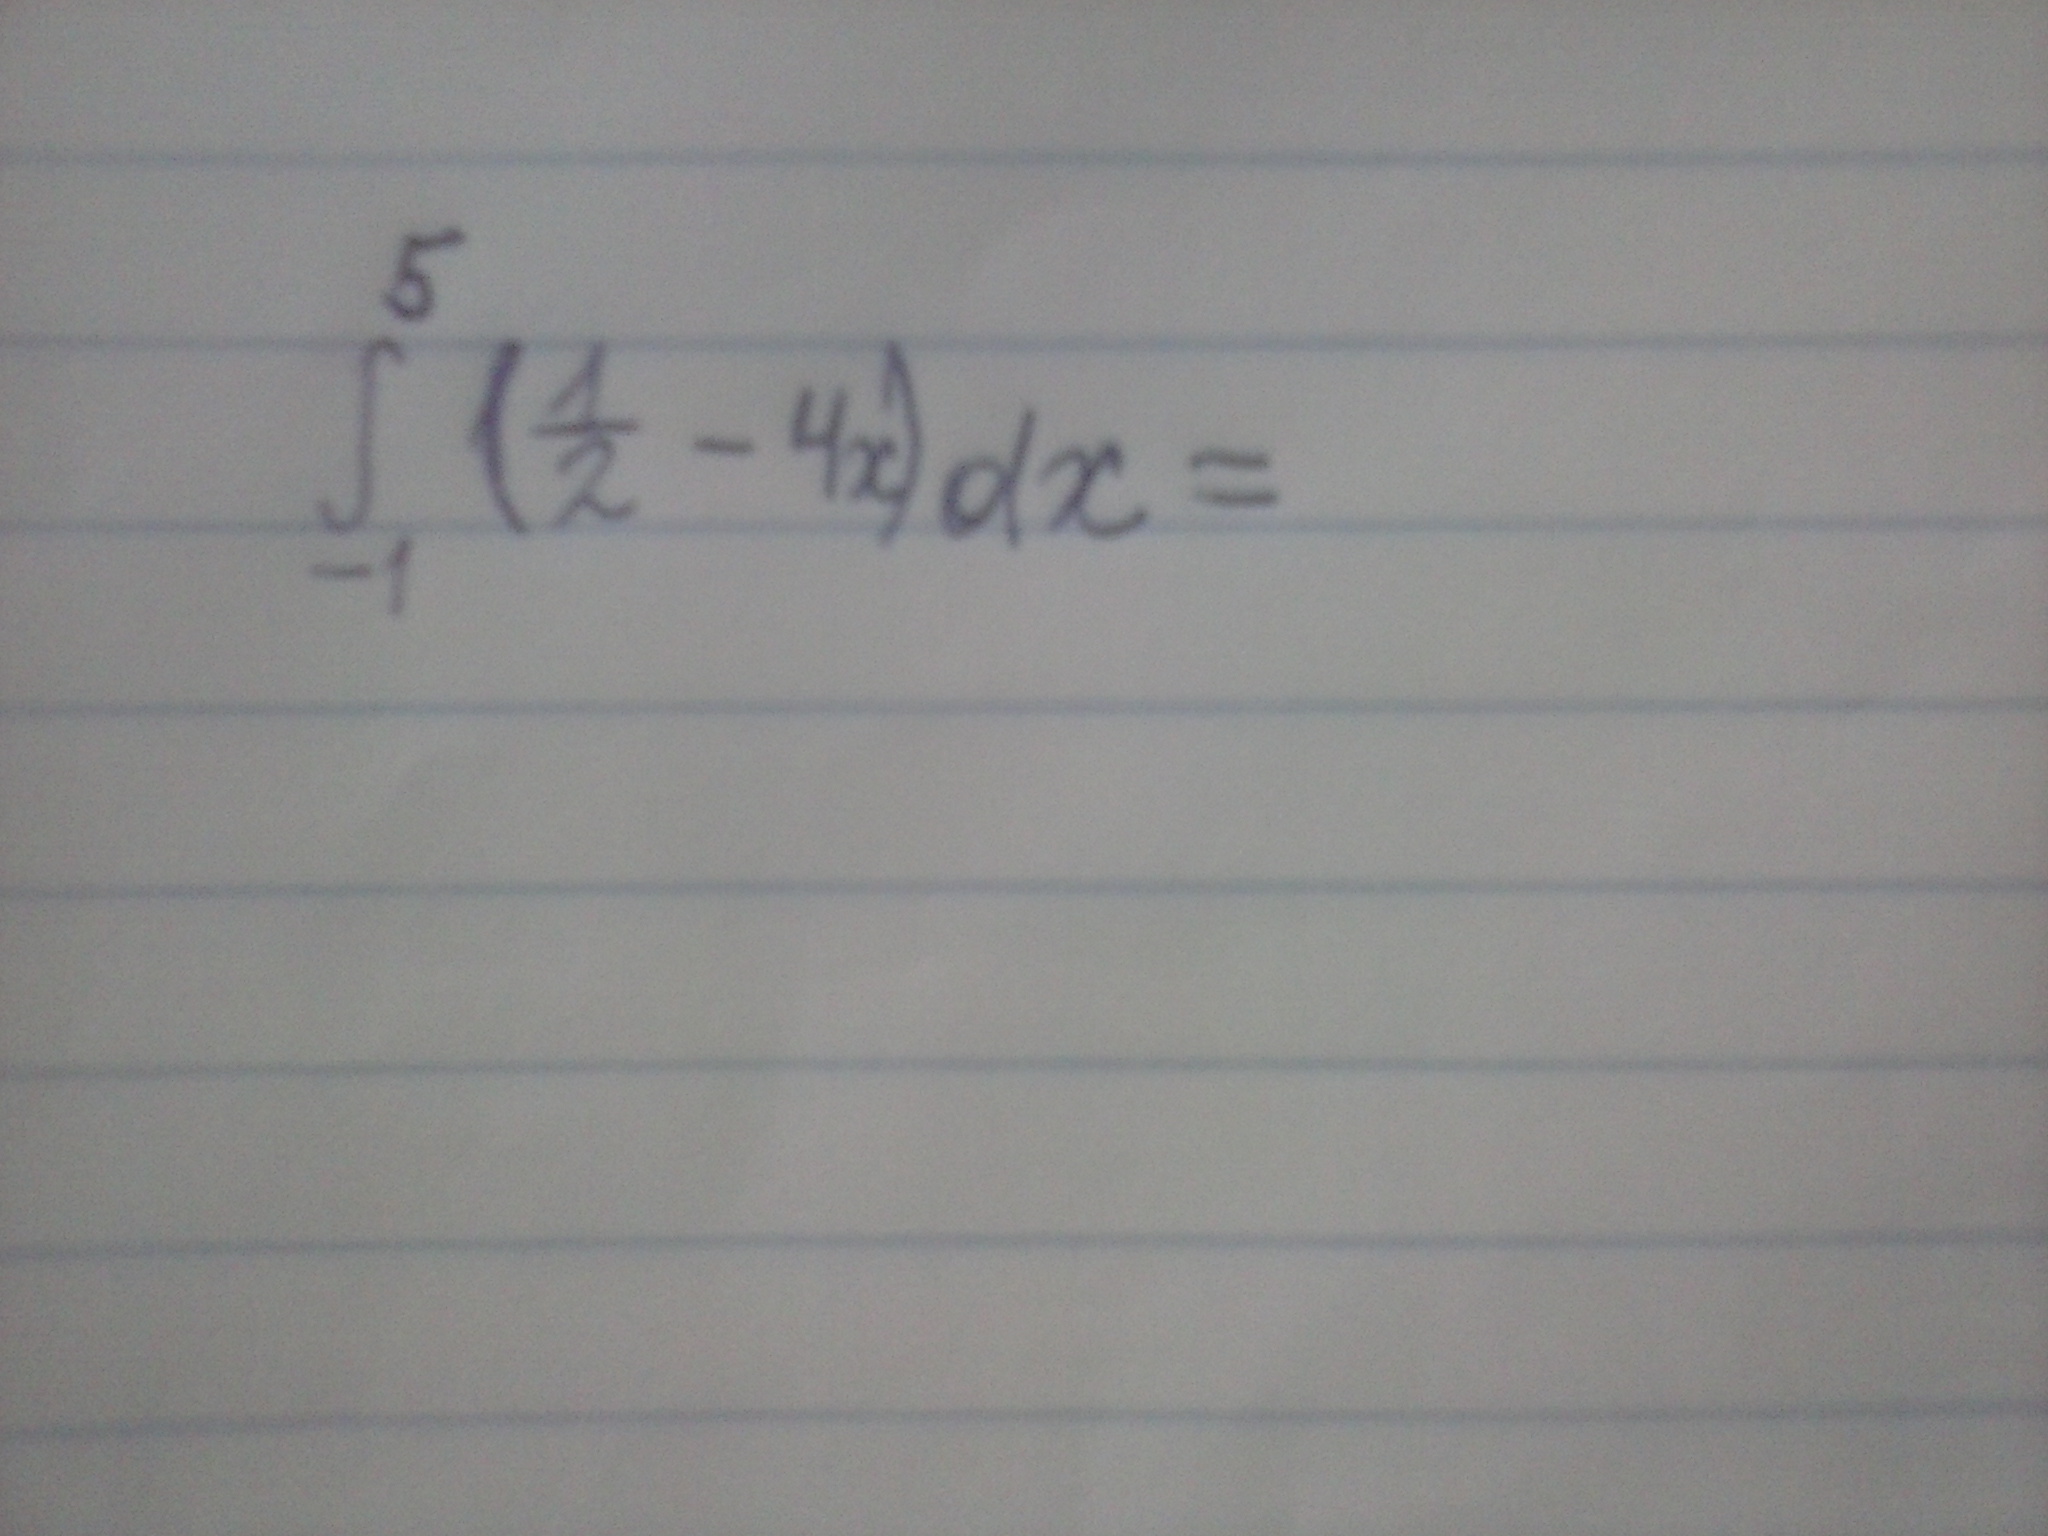 ∫_{-1}^{5} (1/2 - 4x) dx =